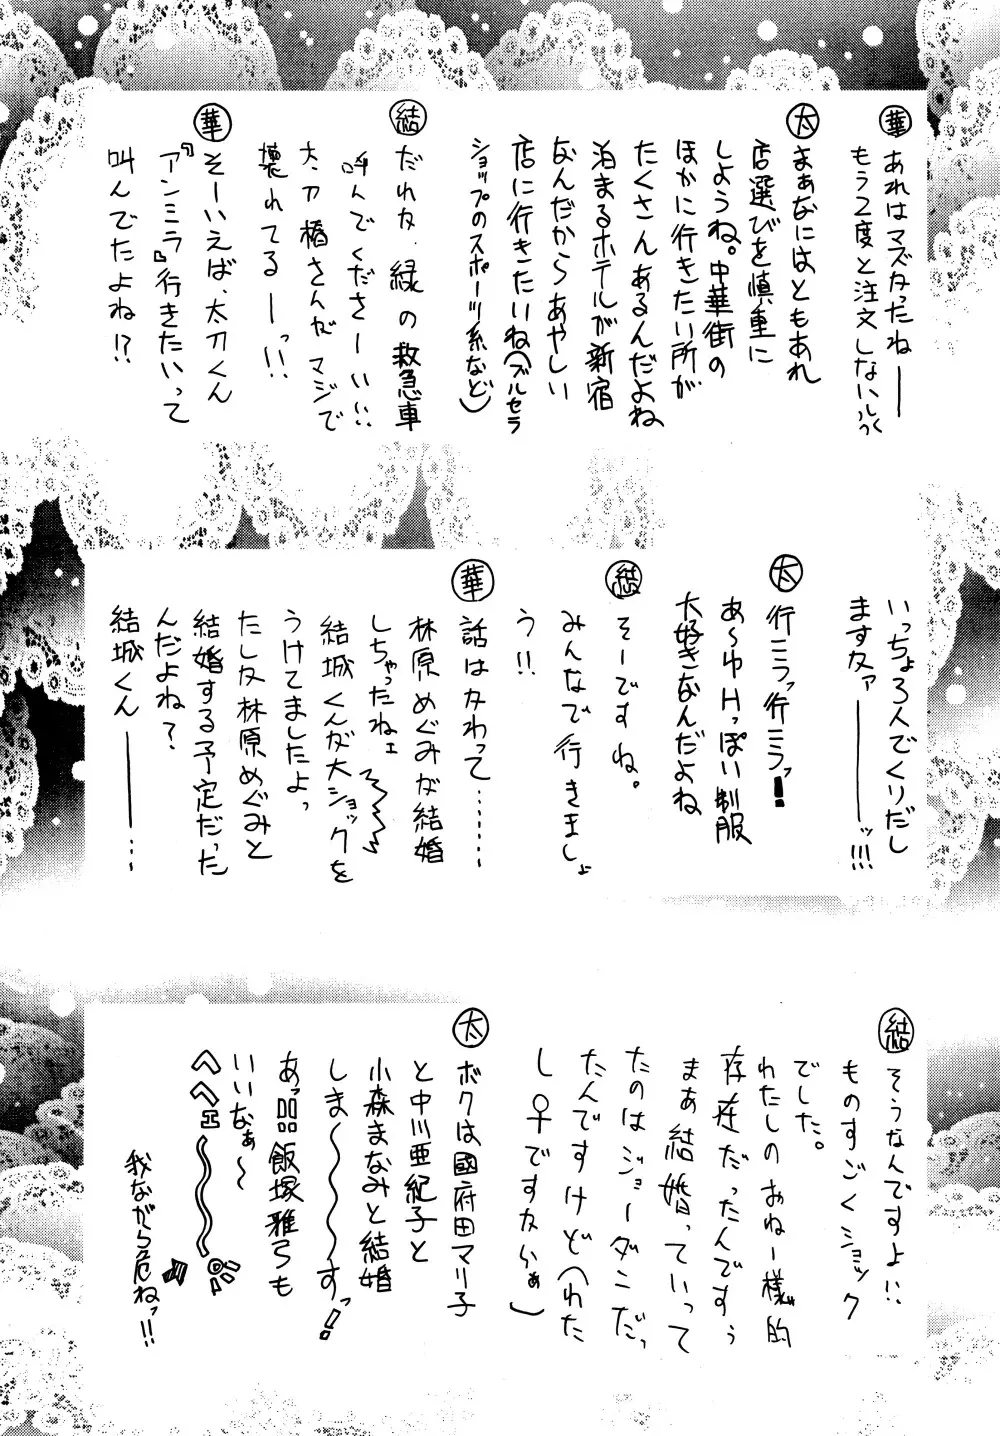 華 あれはマズかったね———
もう2度と注文しないルっくっ
太 まぁなにはともあれ
店選びを慎重に
しようね。中華街の
ほかに行きたい所が
たくさんあるんだよね
泊まるホテルが新宿
なんだからあやしい
店に行きたいね(ブルセラ
ショップのスポーツ系など)
結 だれか緑の救急車
呼んでくださーいい
太刀椿さんがマジで
壊れてるーっ!!
華 そーいえば、太刀くん
『アンミラ』行きたいって
叫んでたよね!?
いっちょ3人でくりだし
ますかァ———ッ!!!
太 行こうっ行こうっ!
あ〜ゆHっぽい制服
大好きなんだよね
結 そーですね。
みんなで行きましょ
う!!
華 話はかわって……
林原めぐみが結婚
しちゃったねェ
結城くんが大ショックを
うけてましたよっ
たしか林原めぐみと
結婚する予定だった
んだよね?
結城くん———…
結 そうなんですよ!!
ものすごくショック
でした。
わたしのおねー様的
存在だったんですぅ
まぁ結婚っていって
たのはジョーダンだっ
たんですけど(わた
し♀ですからぁ)
太 ボクは國府田マリ子
と中川亜紀子と
小森まなみと結婚
しま〜〜〜すっ!
あっ!!飯塚雅弓も
いいなぁ〜
へへェ〜〜〜
我ながら危ねっ!!